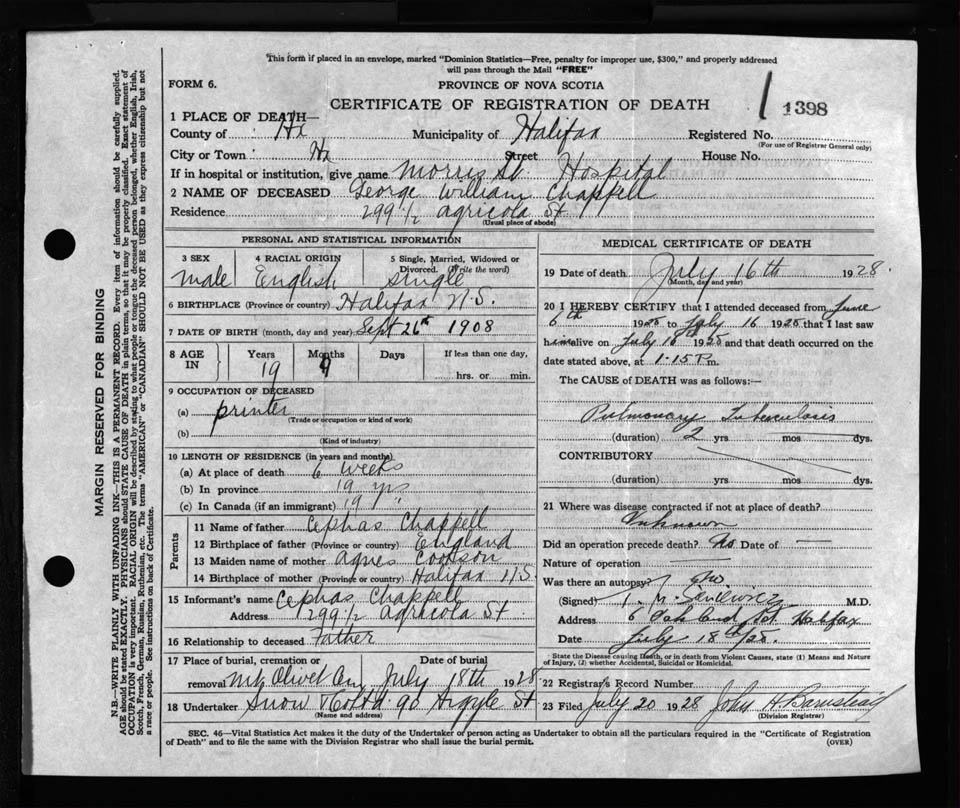 This form if placed in an envelope, marked "Dominion Statistics—Free, penalty for improper use, $300," and properly addressed
will pass through the Mail "FREE"
FORM 6.
PROVINCE OF NOVA SCOTIA
CERTIFICATE OF REGISTRATION OF DEATH
1398
1 PLACE OF DEATH—
County of Hx Municipality of Halifax Registered No.
(For use of Registrar General only)
City or Town Hx Street House No.
If in hospital or institution, give name Morris St. Hospital
2 NAME OF DECEASED George William Chappell
Residence 299½ Agricola St
(Usual place of abode)
PERSONAL AND STATISTICAL INFORMATION
3 SEX 4 RACIAL ORIGIN 5 Single, Married, Widowed or
Divorced. (Write the word)
male English single
6 BIRTHPLACE (Province or country) Halifax N.S.
7 DATE OF BIRTH (month, day and year) Sept 26th 1908
8 AGE IN Years Months Days If less than one day,
19 9 hrs. or min.
9 OCCUPATION OF DECEASED
(a) printer
(Trade or occupation or kind of work)
(b)
(Kind of industry)
10 LENGTH OF RESIDENCE (in years and months)
(a) At place of death 6 weeks
(b) In province 19 yrs
(c) In Canada (if an immigrant) 19 "
Parents
11 Name of father Cephas Chappell
12 Birthplace of father (Province or country) England
13 Maiden name of mother Agnes
14 Birthplace of mother (Province or country) Halifax N.S.
15 Informant's name Cephas Chappell
Address 299½ Agricola St
16 Relationship to deceased Father
17 Place of burial, cremation or Date of burial
removal Mt Olivet Cem July 18th 1928
18 Undertaker Snow & Co Ltd 90 Argyle St
(Name and address)
MEDICAL CERTIFICATE OF DEATH
19 Date of death July 16th 1928.
(Month, day and year)
20 I HEREBY CERTIFY that I attended deceased from June
6th 1928 to July 16 1928 that I last saw
him alive on July 16 1928 and that death occurred on the
date stated above, at 1.15 P.m.
The CAUSE OF DEATH was as follows:—
Pulmonary Tuberculosis
(duration) 2 yrs mos dys.
CONTRIBUTORY
(duration) yrs mos dys.
21 Where was disease contracted if not at place of death?
Unknown
Did an operation precede death? No Date of —
Nature of operation
Was there an autopsy? No
(Signed) M.D.
Address Halifax
Date July 18th/28.
State the Disease causing Death, or in death from Violent Causes, state (1) Means and Nature
of Injury, (2) whether Accidental, Suicidal or Homicidal.
22 Registrar's Record Number
23 Filed July 20 1928 John H. Barnstead
(Division Registrar)
SEC. 46—Vital Statistics Act makes it the duty of the Undertaker or person acting as Undertaker to obtain all the particulars required in the "Certificate of Registration
of Death" and to file the same with the Division Registrar who shall issue the burial permit.
(OVER)
MARGIN RESERVED FOR BINDING
N.B.—WRITE PLAINLY WITH UNFADING INK—THIS IS A PERMANENT RECORD. Every item of information should be carefully supplied.
AGE should be stated EXACTLY. PHYSICIANS should STATE CAUSE OF DEATH in plain terms, so that it may be properly classified. Exact statement of
OCCUPATION is very important. RACIAL ORIGIN will be described by stating to what people or tongue the deceased person belonged, whether English, Irish,
Scotch, French, German, Russian, Ruthenian, etc. The terms "AMERICAN" or "CANADIAN" SHOULD NOT BE USED as they express citizenship but not
a race or people. See instructions on back of Certificate.